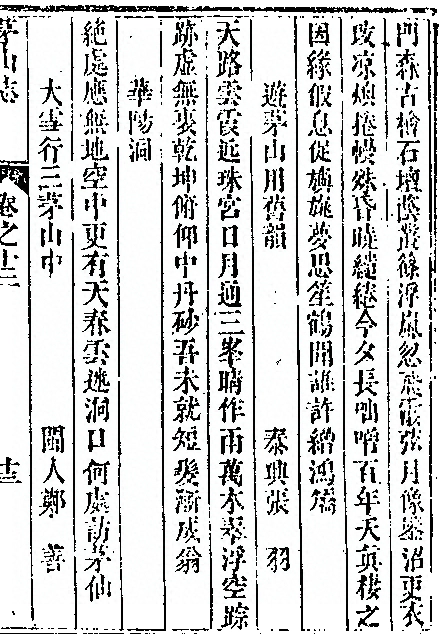 門森古檜石壇蔭叢篠浮嵐忽飛霞弦月像墨沼更衣
改凉燠捲幔殊昏曉繾綣今夕長咄嗟百年夭真棲之
因緣假息促旃旎夢思笙鶴閒誰許繒鴻矯
遊茅山用舊韻 泰興張 羽
天路雲霞近珠宮日月通三峯晴作雨萬木翠浮空踪
跡虛無裏乾坤俯仰中丹砂吾未就短髮漸成翁
華陽洞
絶處應無地空中更有天春雲迷洞口何處訪茅仙
大雪行三茅山中 閩人鄭 善
茅山志 卷之十二 十三